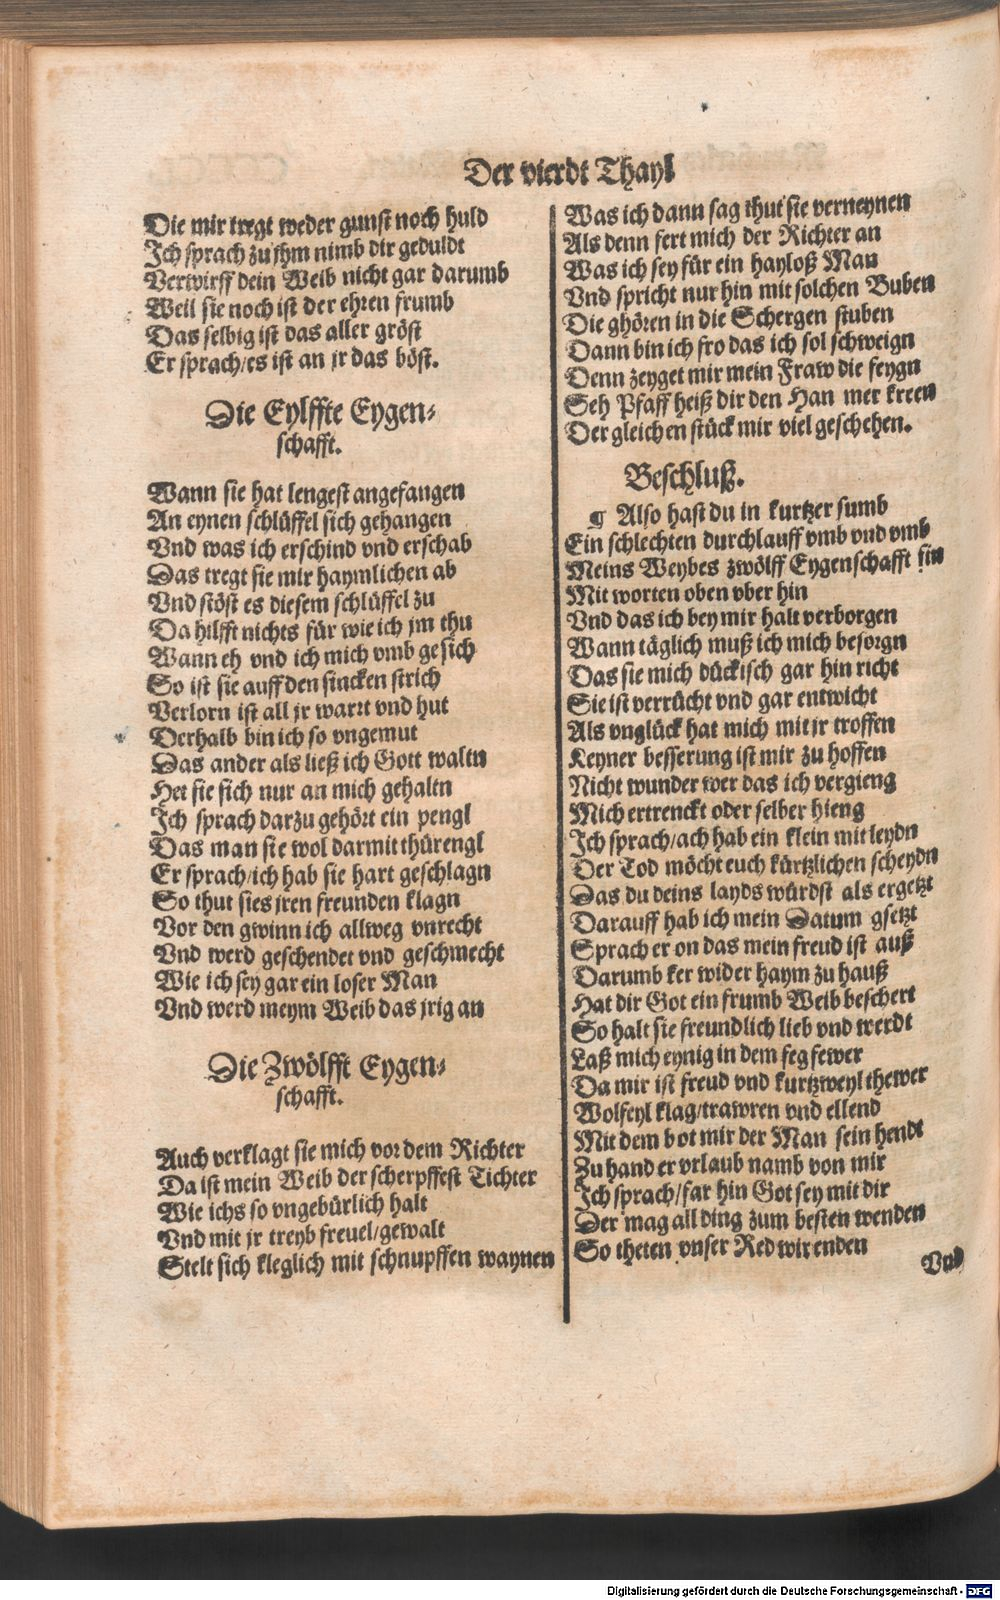 Der vierdt Thayl
Die mir tregt weder gunst noch huld
Ich sprach zu jhm nimb dir geduldt
Verwirff dein Weib nicht gar darumb
Weil sie noch ist der ehren frumb
Das selbig ist das aller gröst
Er sprach/es ist an jr das böst.
Die Eylffte Eygen-
schafft.
Wann sie hat lengest angefangen
An eynen schlüssel sich gehangen
Vnd was ich erschind vnd erschab
Das tregt sie mir haymlichen ab
Vnd stöst es diesem schlüssel zu
Da hilfft nichts für wie ich jm thu
Wann eh vnd ich mich vmb gesich
So ist sie auff den sincken strich
Verlorn ist all jr wart vnd hut
Derhalb bin ich so vngemut
Das ander als ließ ich Gott waltn
Het sie sich nur an mich gehaltn
Ich sprach darzu gehört ein pengl
Das man sie wol darmit thürengl
Er sprach/ich hab sie hart geschlagn
So thut sies jren freunden klagn
Vor den gwinn ich allweg vnrecht
Vnd werd geschendet vnd geschmecht
Wie ich sey gar ein loser Man
Vnd werd meym Weib das jrig an
Die Zwölfft Eygen-
schafft.
Auch verklagt sie mich vor dem Richter
Da ist mein Weib der scherpffest Tichter
Wie ichs so vngebürlich halt
Vnd mit jr treyb freuel/gewalt
Stelt sich kleglich mit schnupffen waynen
Was ich dann sag thut sie verneynen
Als denn fert mich der Richter an
Was ich sey für ein hayloß Man
Vnd spricht nur hin mit solchen Buben
Die ghören in die Schergen stuben
Dann bin ich fro das ich sol schweign
Denn zeyget mir mein Fraw die feygn
Seh Pfaff heiß dir den Han mer kreen
Der gleichen stück mir viel geschehen.
Beschluß.
¶ Also hast du in kurtzer sumb
Ein schlechten durchlauff vmb vnd vmb
Meins Weybes zwölff Eygenschafft sin
Mit worten oben vber hin
Vnd das ich bey mir halt verborgen
Wann täglich muß ich mich besorgn
Das sie mich dückisch gar hin richt
Sie ist verrücht vnd gar entwicht
Als vnglück hat mich mit jr troffen
Keyner besserung ist mir zu hoffen
Nicht wunder wer das ich vergieng
Mich ertrenckt oder selber hieng
Ich sprach/ach hab ein klein mit leydn
Der Tod möcht euch kürtzlichen scheydn
Das du deins layds würdst als ergetzt
Darauff hab ich mein Datum gsetzt
Sprach er on das mein freud ist auß
Darumb ker wider haym zu hauß
Hat dir Got ein frumb Weib beschert
So halt sie freundlich lieb vnd werdt
Laß mich eynig in dem fegfewer
Da mir ist freud vnd kurtzweyl thewer
Wolfeyl klag/trawren vnd ellend
Mit dem bot mir der Man sein hendt
Zu hand er vrlaub namb von mir
Ich sprach/far hin Got sey mit dir
Der mag all ding zum besten wenden
So theten vnser Red wir enden
Vnd
Digitalisierung gefördert durch die Deutsche Forschungsgemeinschaft - DFG